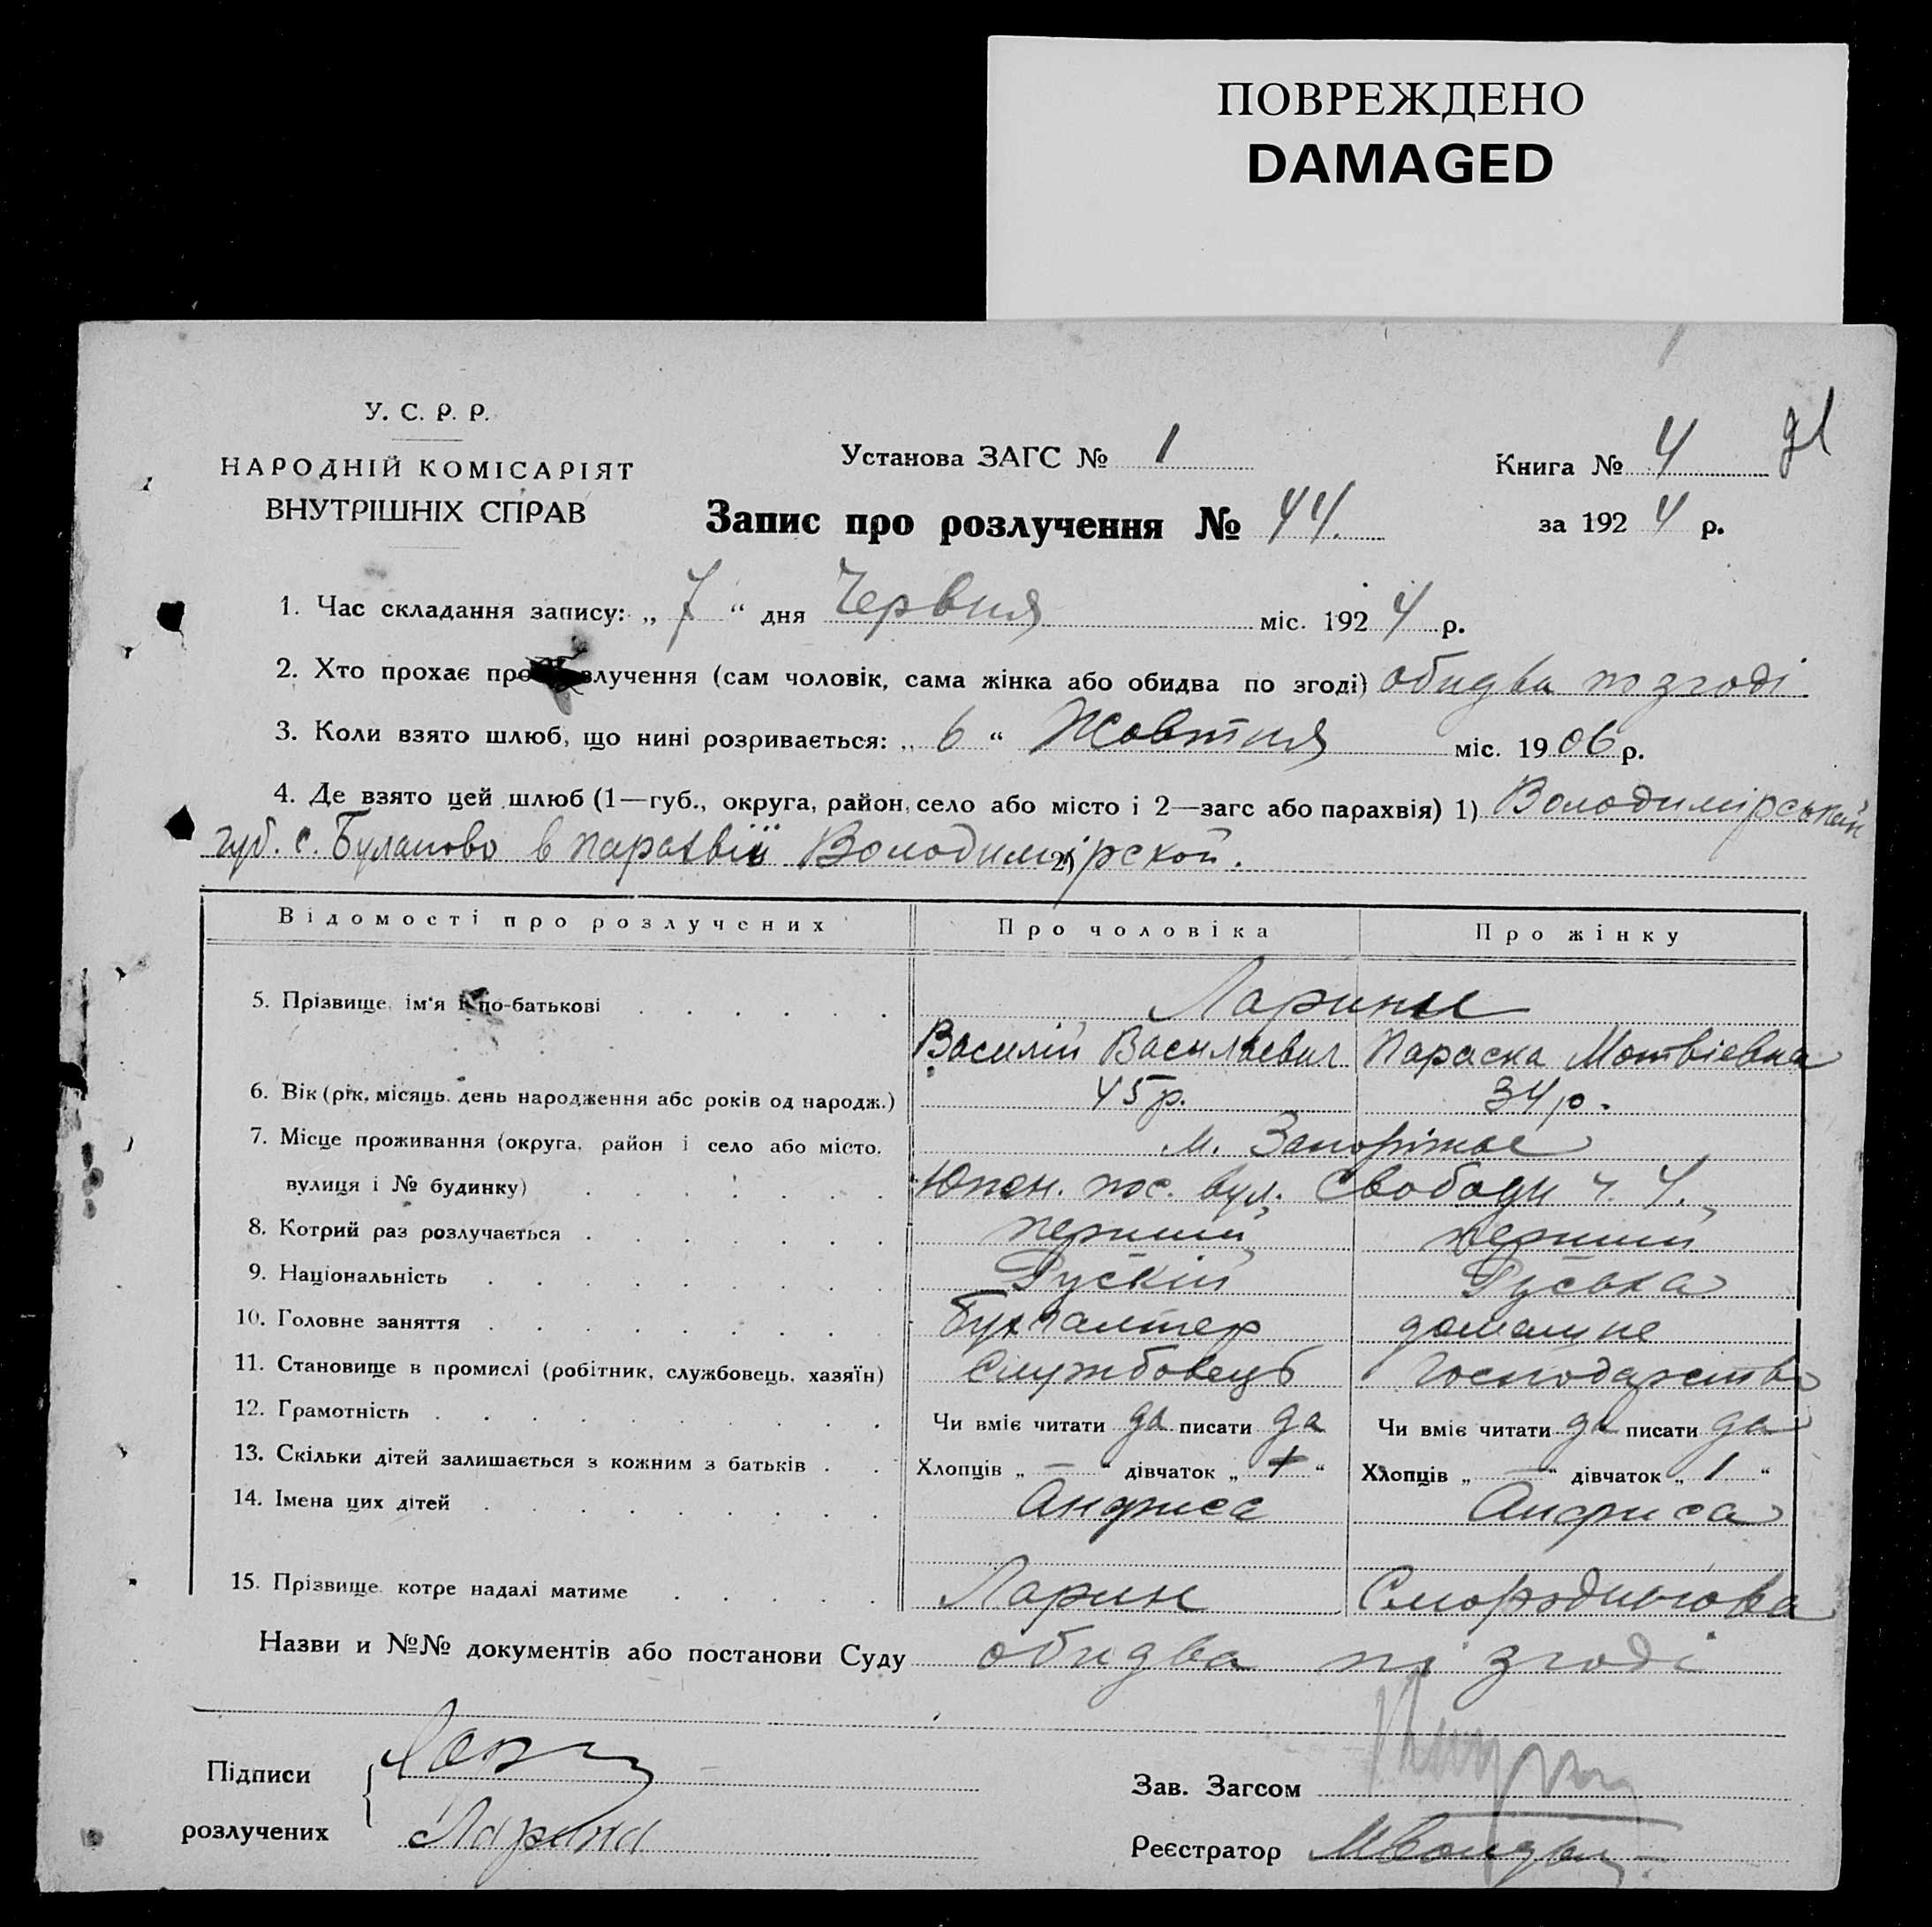 ПОВРЕЖДЕНО
DAMAGED
У. С. Р. Р.
НАРОДНІЙ КОМІСАРІЯТ
ВНУТРІШНІХ СПРАВ
Установа ЗАГС № 1
Книга № 4
Запис про розлучення № 44.
за 1924 р.
1. Час складання запису: „ 7 “ дня Червня міс. 1924 р.
2. Хто прохає про злучення (сам чоловік, сама жінка або обидва по згоді) обидва по згоді
3. Коли взято шлюб, що нині розривається: „ 6 “ Жовтня міс. 1906 р.
4. Де взято цей шлюб (1—губ., округа, район, село або місто і 2—загс або парахвія) 1) Володимірській
губ. с. Буланово в парахвії Володимірской. 2)
Відомості про розлучених Про чоловіка Про жінку
5. Прізвище, ім'я і по-батькові Ларины
Василій Васильевич Параска Мотвіевна
6. Вік (рік, місяць, день народження або років од народж.) 45 р. 34 р.
7. Місце проживання (округа, район і село або місто, м. Запоріжже
вулиця і № будинку) пос. вул. Свободи ч. 4.
8. Котрий раз розлучається перший перший
9. Національність Рускій Руська
10. Головне заняття бухгалтер домашне
11. Становище в промислі (робітник, службовець, хазяїн) Службовець господарство
12. Грамотність Чи вміє читати да писати да Чи вміє читати да писати да
13. Скільки дітей залишається з кожним з батьків Хлопців „ — “ дівчаток „ 1 “ Хлопців „ — “ дівчаток „ 1 “
14. Імена цих дітей
15. Прізвище, котре надалі матиме Ларин Смородинова
Назви и №№ документів або постанови Суду обидва по згоді
Підписи
розлучених Ларина
Зав. Загсом
Реєстратор